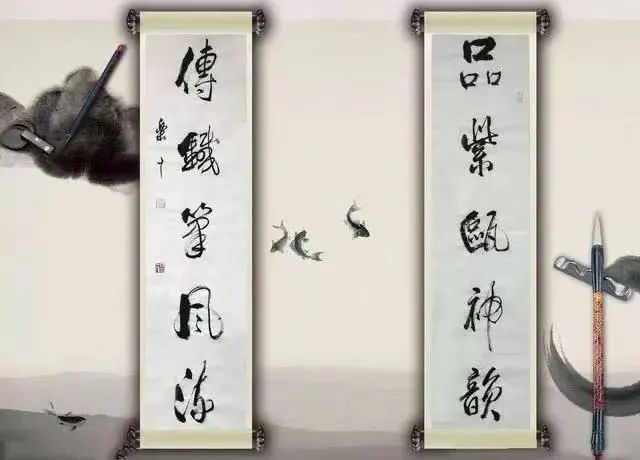 品紫甌神韻
傳鐵筆風流